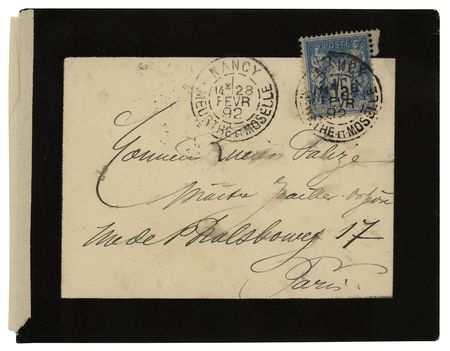 NANCY
14E 28
FEVR
92
MEURTHE-ET-MOSELLE
POSTES
15
NANCY
28
FEVR
92
MEURTHE-ET-MOSELLE
Monsieur Lucien Falize
Maître Joailler-Orfèvre
rue de Phalsbourg 17
Paris.